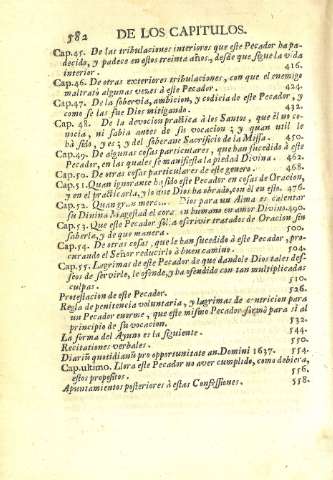 582 DE LOS CAPITULOS.
Cap.45. De las tribulaciones interiores que este Pecador ha pa-
decido, y padece en estos treinta años, desde que sigue la vida
interior. 416.
Cap.46. De otras exteriores tribulaciones, con que el enemigo
maltratò algunas vezes à este Pecador. 424.
Cap.47. De la sobervia, ambicion, y codicia de este Pecador, y
como se las fue Dios mitigando. 432.
Cap. 48. De la devocion practica à los Santos, que èl no co-
nocia, ni sabia antes de su vocacion; y quan util le
ha sido, y es; y del soberano Sacrificio de la Missa. 450.
Cap.49. De algunas cosas particulares, que han sucedido à este
Pecador, en las quales se manifiesta la piedad Divina. 462.
Cap.50. De otras cosas particulares de este genero. 468.
Cap.51. Quan ignorante ha sido este Pecador en cosas de Oracion,
y en el practicarla, y lo que Dios ha obrado, con èl en esto. 476.
Cap.52. Quan Dios para un Alma es calentar
su Divina Magestad el humano en amor Divino. 490.
Cap.53. Que este Pecador escrivir tratados de Oracion sin
saberla, y de que manera. 500.
Cap.54. De otras cosas, que le han sucedido à este Pecador, pro-
curando el Señor reducirlo à buen camino. 504.
Cap.55. Lagrimas de este Pecador de que dandole Dios tales des-
seos de servirle, le ofende, y ha ofendido con tan multiplicadas
culpas. 510.
Protestacion de este Pecador. 526.
Regla de penitencia voluntaria, y lagrimas de contricion para
un Pecador enorme, que este mismo Pecador formò para sì al
principio de su vocacion. 532.
La forma del Ayuno es la siguiente. 544.
Recitationes verbales. 550.
Diariũ quotidianũ pro opportunitate an.Domini 1637. 554.
Cap.ultimo. Llora este Pecador no aver cumplido, como debiera,
estos propositos. 556.
Apuntamientos posteriores à estas Confessiones. 558.